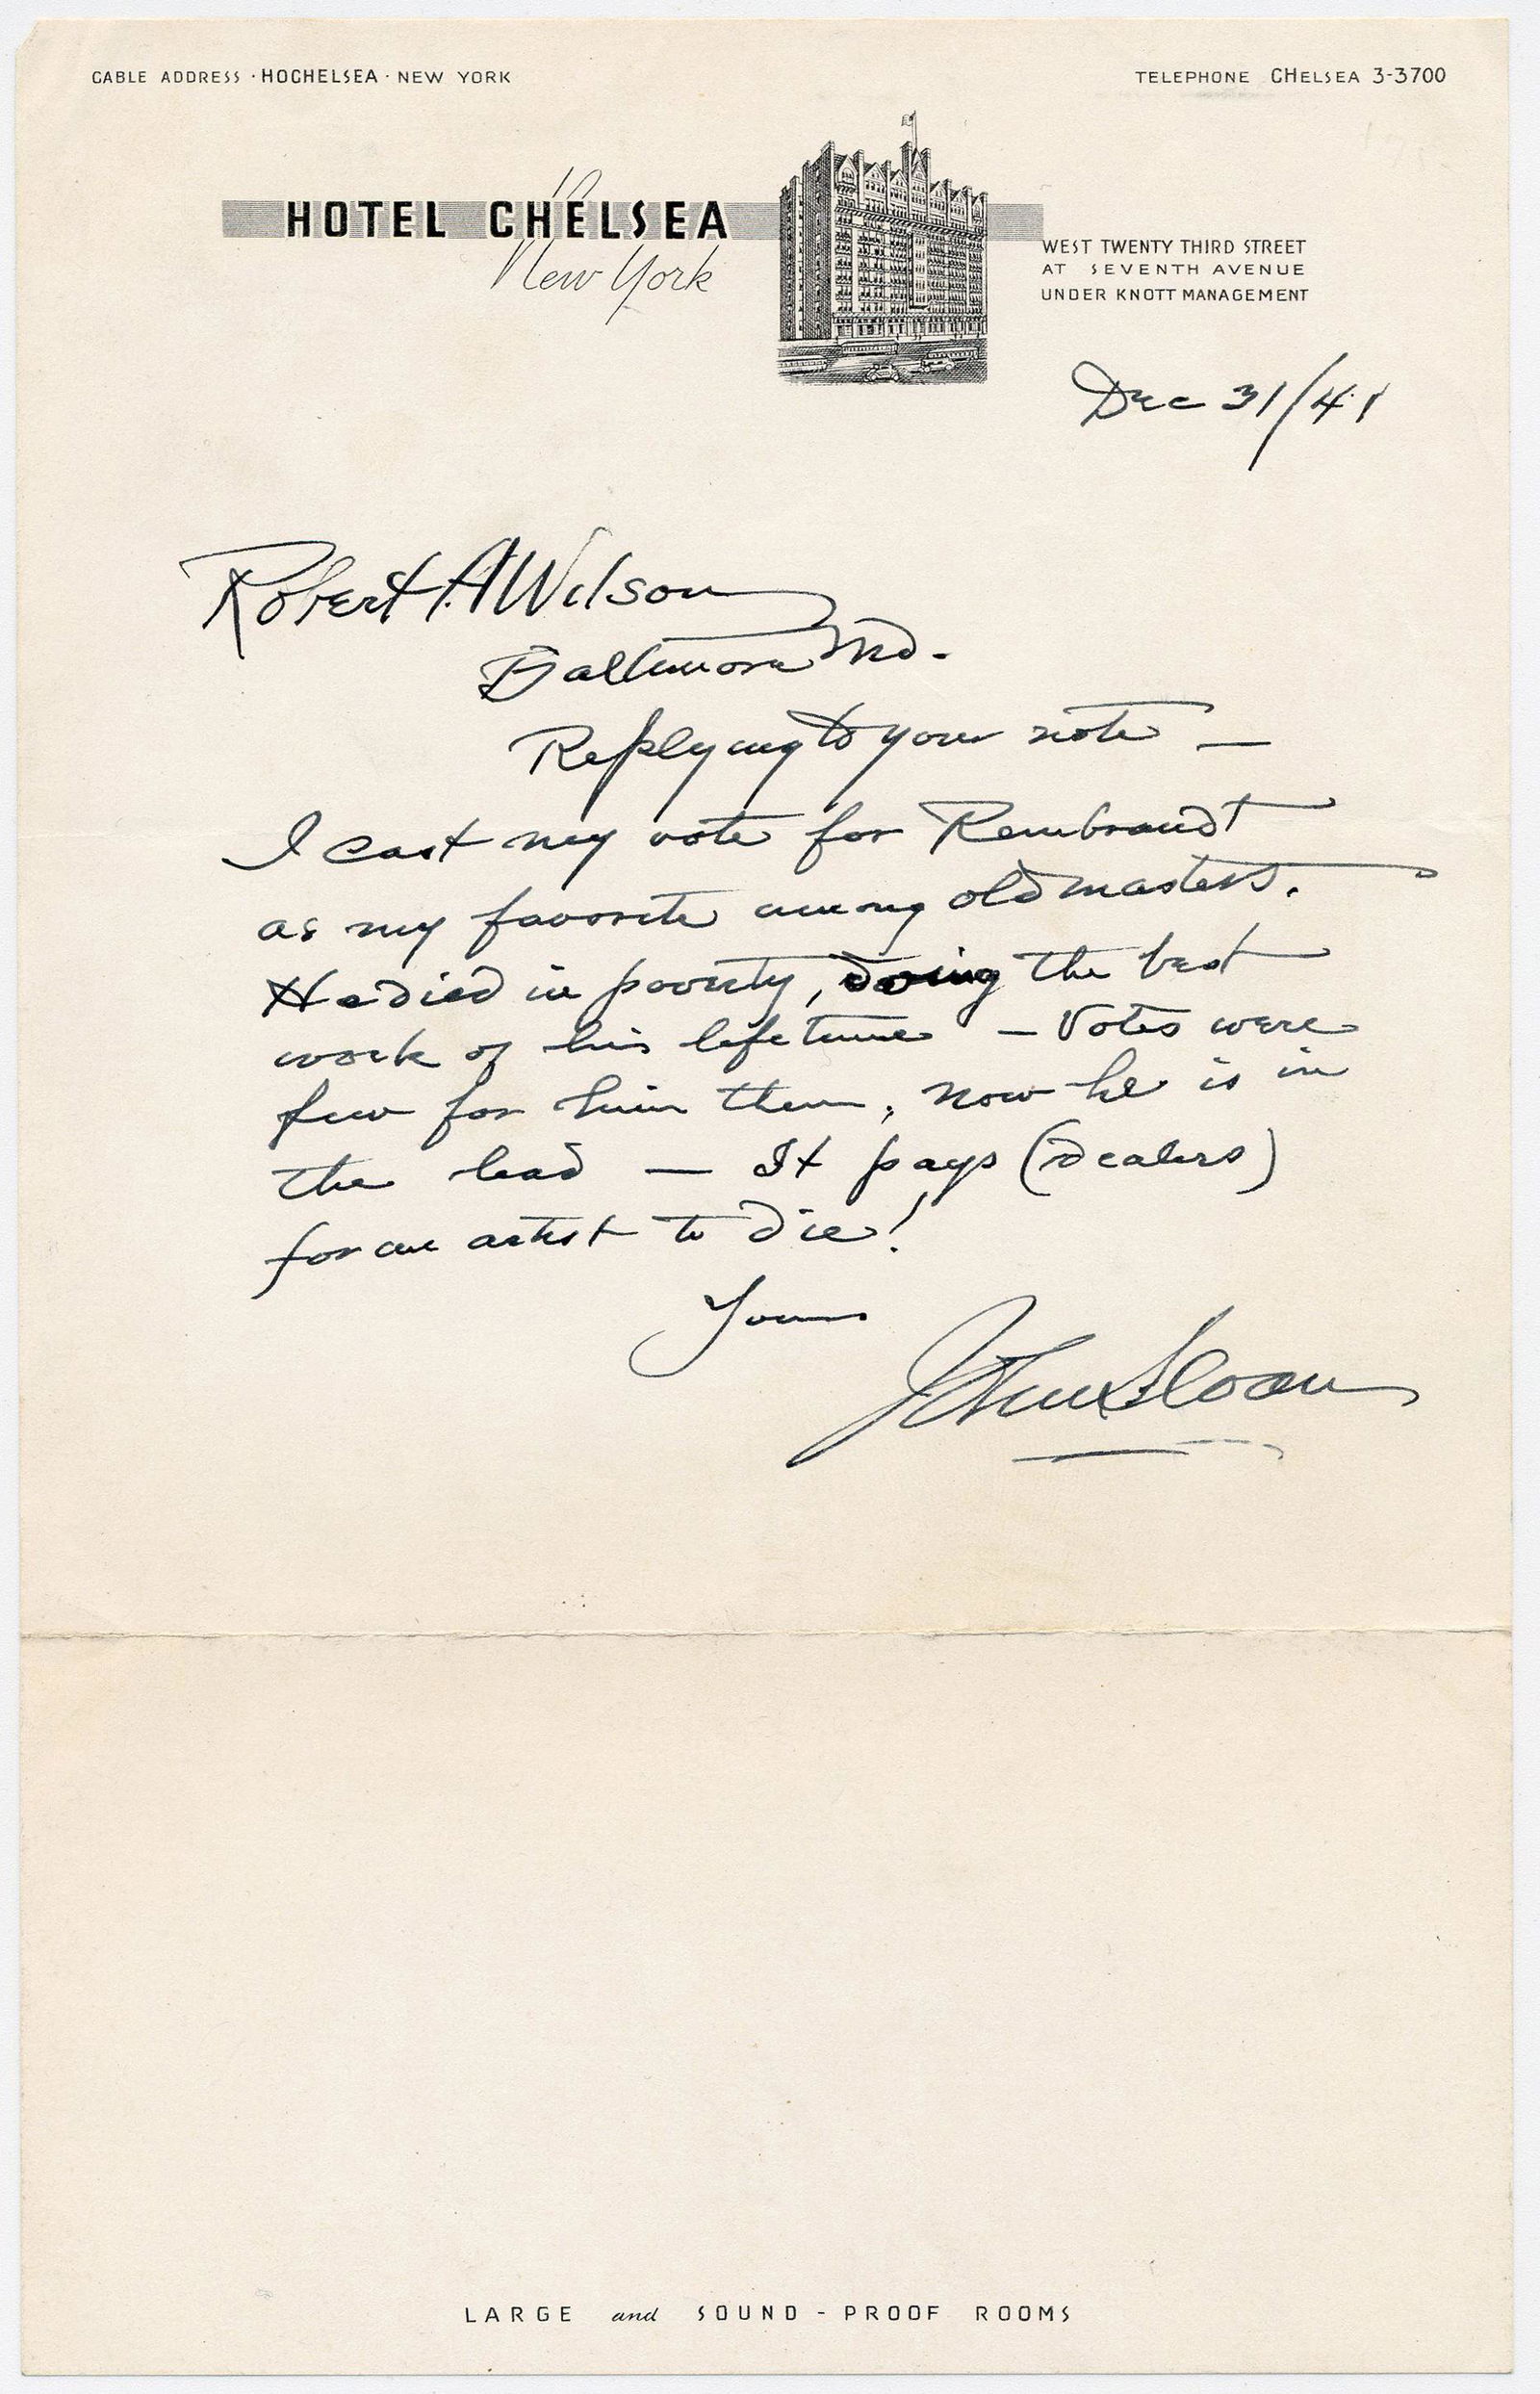 CABLE ADDRESS · HOCHELSEA · NEW YORK
TELEPHONE CHELSEA 3-3700
HOTEL CHELSEA
New York
WEST TWENTY THIRD STREET
AT SEVENTH AVENUE
UNDER KNOTT MANAGEMENT
Dec 31/41
Robert A Wilson
Baltimore Md.
Replying to your note —
I cast my vote for Rembrandt
as my favorite among old masters.
He died in poverty, doing the best
work of his lifetime — Votes were
few for him then, now he is in
the lead — It pays (dealers)
for an artist to die!
Yours
John Sloan
LARGE and SOUND-PROOF ROOMS